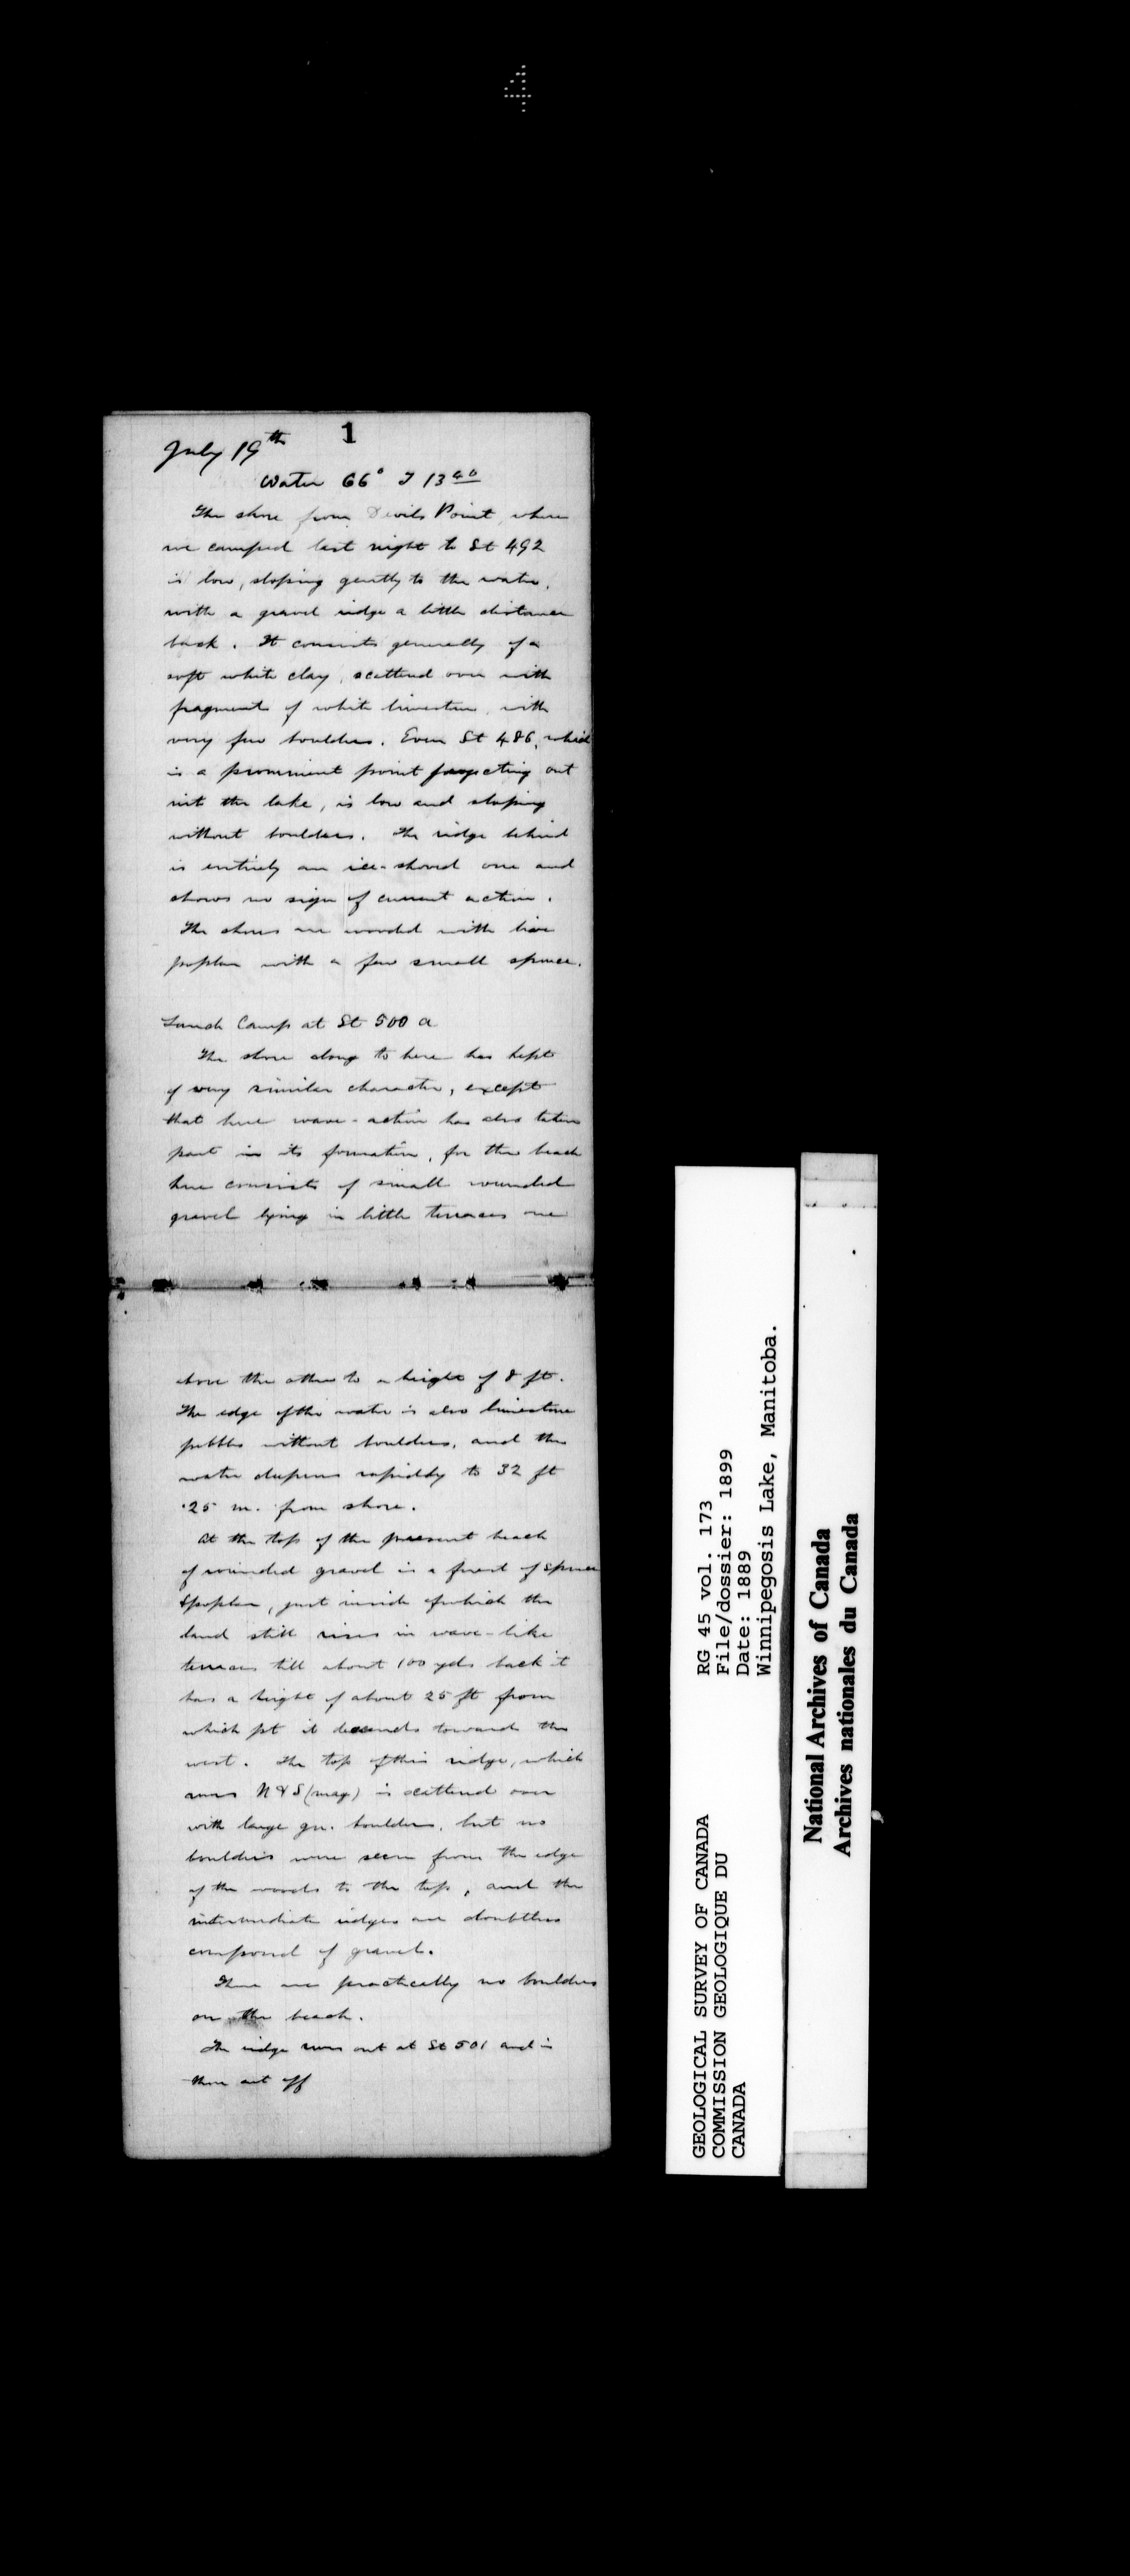 4
1
July 19th
Water 66° J 13 40
The shore from Devils Point, where
we camped last night to St 492
is low, sloping gently to the water,
with a gravel ridge a little distance
back. It consists generally of a
soft white clay, scattered over with
fragments of white limestone, with
very few boulders. Even St 486, which
is a prominent point projecting out
into the lake, is low and sloping
without boulders. The ridge behind
is entirely an ice-shoved one and
shows no sign of current action.
The shores are wooded with
poplar with a few small spruce.
Lunch Camp at St 500 a
The shore along to here has kept
of very similar character, except
that here wave-action has also taken
part in its formation, for the beach
here consists of small rounded
gravel lying in little terraces one
above the other to a height of 8 ft.
The edge of the water is also limestone
pebbles without boulders, and the
water deepens rapidly to 32 ft
.25 m. from shore.
At the top of the present beach
of rounded gravel is a forest of spruce
& poplar, just inside of which the
land still rises in wave-like
terraces till about 100 yds back it
has a height of about 25 ft from
which pt it decends toward the
west. The top of this ridge, which
runs N & S (mag) is scattered over
with large gn. boulders, but no
boulders were seen from the edge
of the woods to the top, and the
intermediate ridges are doubtless
composed of gravel.
There are practically no boulders
on the beach.
The ridge runs out at St 501 and is
there cut off
GEOLOGICAL SURVEY OF CANADA
COMMISSION GEOLOGIQUE DU
CANADA
RG 45 vol. 173
File/dossier: 1899
Date: 1889
Winnipegosis Lake, Manitoba.
National Archives of Canada
Archives nationales du Canada